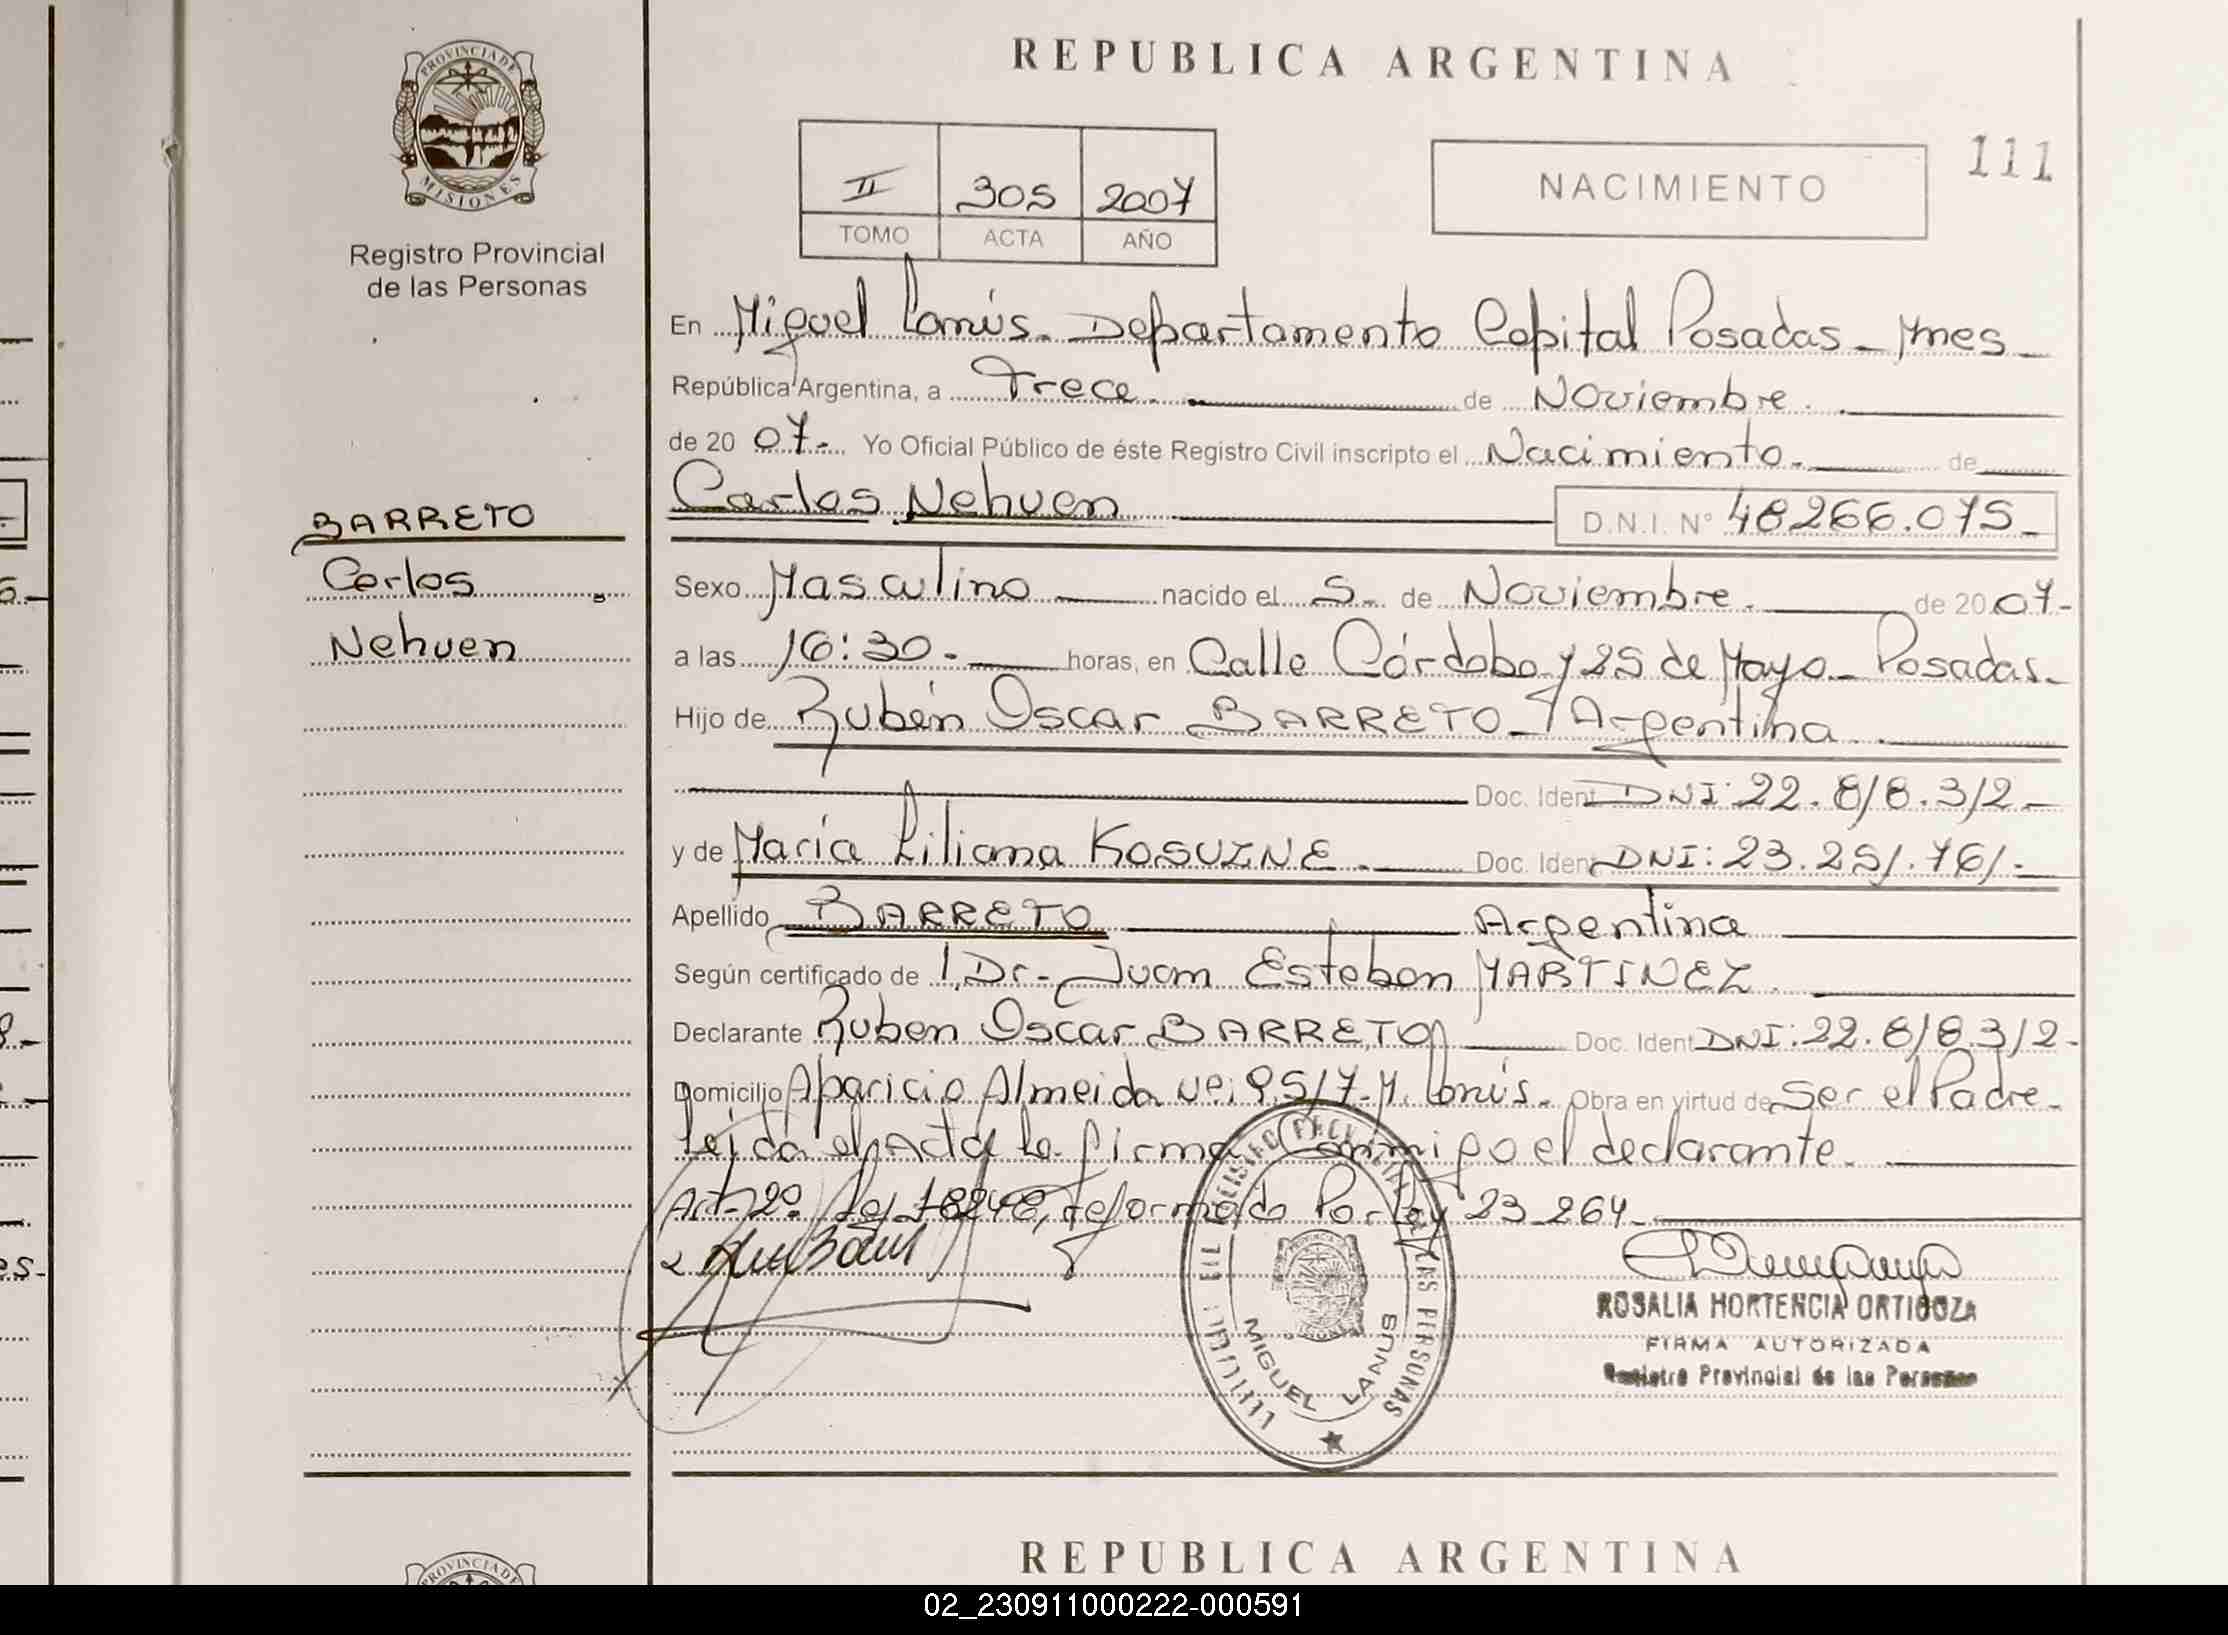 PROVINCIA DE
MISIONES
Registro Provincial
de las Personas
REPUBLICA ARGENTINA
II 305 2007
TOMO ACTA AÑO
NACIMIENTO
111
En Miguel Lanús. Departamento Capital Posadas - Mnes -
República Argentina, a Trece. de Noviembre.
de 20 07.- Yo Oficial Público de éste Registro Civil inscripto el Nacimiento. de
Carlos Nehuen D.N.I. Nº 48266.075 -
BARRETO
Carlos
Nehuen
Sexo Masculino nacido el 5. de Noviembre. de 20 07-
a las 16:30.- horas, en Calle Córdoba y 25 de Mayo - Posadas.-
Hijo de Rubén Oscar BARRETO - Argentina
Doc. Ident DNI: 22.818.312 -
y de María Liliana KOSUZNE. Doc. Ident DNI: 23.251.761.-
Apellido BARRETO Argentina
Según certificado de Dr. Juan Esteban MARTINEZ
Declarante Ruben Oscar BARRETO Doc. Ident DNI: 22.818.312 -
Domicilio Aparicio Almeida M. Lanús. Obra en virtud de Ser el Padre -
Leída el Acta la firma Conmigo el declarante.
Art. 2º. Ley 18248, reformado Por Ley 23.264 -
MIGUEL LANUS
LAS PERSONAS
ROSALIA HORTENCIA ORTIGOZA
FIRMA AUTORIZADA
Registro Provincial de las Personas
PROVINCIA DE
REPUBLICA ARGENTINA
02_230911000222-000591